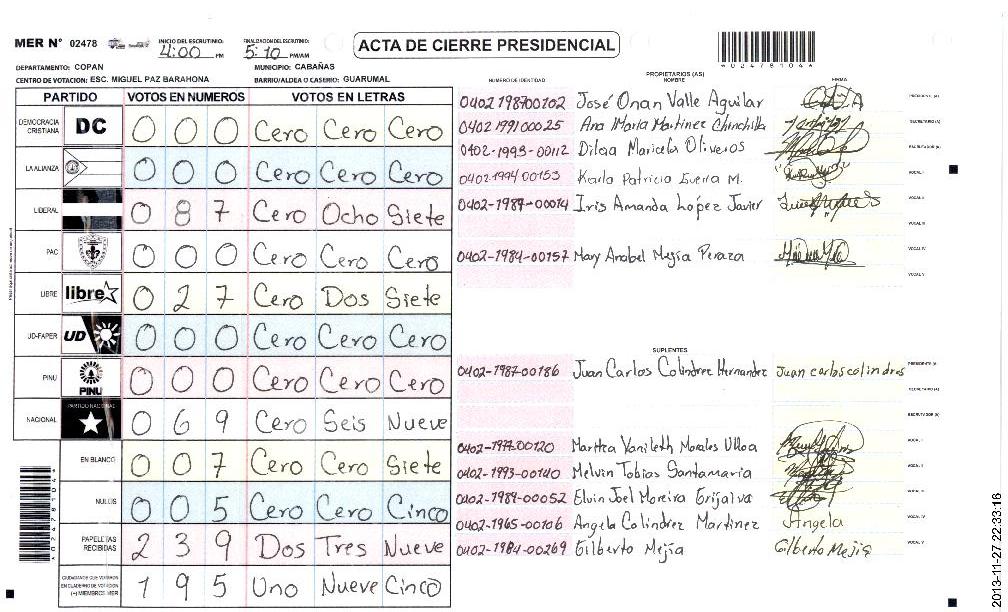 MER N° 02478
INICIO DEL ESCRUTINIO: 4:00 PM
FINALIZACION DEL ESCRUTINIO: 5:10 PM/AM
ACTA DE CIERRE PRESIDENCIAL
*02478104*
DEPARTAMENTO: COPAN
MUNICIPIO: CABAÑAS
CENTRO DE VOTACION: ESC. MIGUEL PAZ BARAHONA
BARRIO/ALDEA O CASERIO: GUARUMAL
PARTIDO VOTOS EN NUMEROS VOTOS EN LETRAS
DEMOCRACIA CRISTIANA DC 0 0 0 Cero Cero Cero
LA ALIANZA 0 0 0 Cero Cero Cero
LIBERAL 0 8 7 Cero Ocho Siete
PAC 0 0 0 Cero Cero Cero
LIBRE libre 0 2 7 Cero Dos Siete
UD-FAPER UD 0 0 0 Cero Cero Cero
PINU PINU 0 0 0 Cero Cero Cero
NACIONAL PARTIDO NACIONAL 0 6 9 Cero Seis Nueve
EN BLANCO 0 0 7 Cero Cero Siete
NULOS 0 0 5 Cero Cero Cinco
PAPELETAS RECIBIDAS 2 3 9 Dos Tres Nueve
CIUDADANOS QUE VOTARON EN CUADERNO DE VOTACION (+) MIEMBROS MER 1 9 5 Uno Nueve Cinco
*02478104*
PROPIETARIOS (AS)
NUMERO DE IDENTIDAD NOMBRE FIRMA
0402 198700102 José Onan Valle Aguilar PRESIDENTE (A)
0402 1991 00025 Ana Maria Martinez Chinchilla SECRETARIO (A)
0402-1993-00112 Dilcia Maricela Oliveros ESCRUTADOR (A)
0402 1994 00153 Karla Patricia Guerra M. VOCAL I
0402-1987-00014 Iris Amanda López Javier VOCAL II
VOCAL III
0402-1984-00157 Mary Anabel Mejía Peraza VOCAL IV
VOCAL V
SUPLENTES
0402-1987-00186 Juan Carlos Colindrez Hernandez Juan carlos colindres PRESIDENTE (A)
SECRETARIO (A)
ESCRUTADOR (A)
0402-1977-00120 Martha Yanileth Morales Ulloa VOCAL I
0402-1993-00140 Melvin Tobias Santamaria VOCAL II
0402-1989-00052 Elvin Joel Moreira Grijalva VOCAL III
0402-1965-00106 Angela Colindrez Martinez Angela VOCAL IV
0402-1984-00269 Gilberto Mejía Gilberto Mejia VOCAL V
2013-11-27 22:33:16